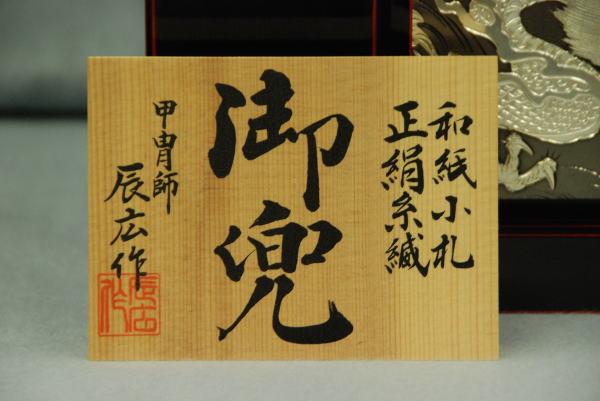 和紙小札
正絹糸縅
御兜
甲冑師
辰広作
辰広作